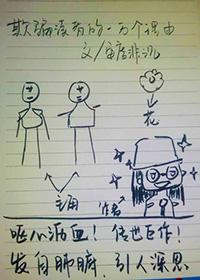 欺骗读者的一万个理由
文/白糖非沉
花
主角
作者
呕心沥血！传世巨作！
发自肺腑，引人深思